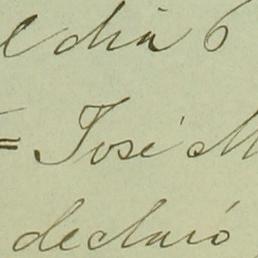 l dia 6
= José M
declaró